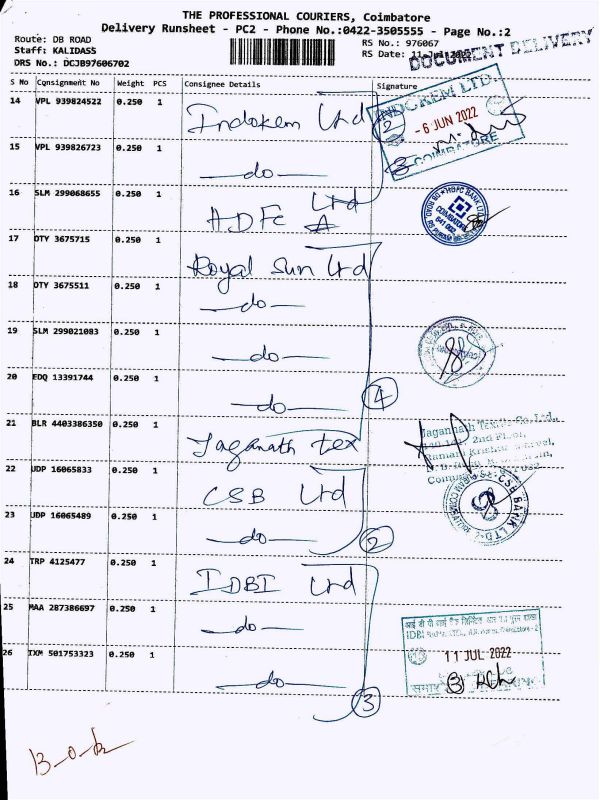 THE PROFESSIONAL COURIERS, Coimbatore
Delivery Runsheet - PC2 - Phone No.:0422-3505555 - Page No.:2
Route: DB ROAD
Staff: KALIDASS
DRS No.: DCJB97606702
RS No.: 976067
RS Date: 11-Jul-2022
DOCUMENT DELIVERY
S No Consignment No Weight PCS Consignee Details Signature
14 VPL 939824522 0.250 1 Indokem Ltd 2
INDOKEM LTD.,
- 6 JUN 2022
COIMBATORE
15 VPL 939826723 0.250 1 —do—
16 SLM 299068655 0.250 1 HDFC Ltd
HDFC BANK LTD
COIMBATORE
641 002
17 OTY 3675715 0.250 1 Royal Sun Ltd
18 OTY 3675511 0.250 1 —do—
19 SLM 299021083 0.250 1 —do—
20 EDQ 13391744 0.250 1 —do— 4
21 BLR 4403386350 0.250 1 Jaganath tex
Jagannath Textile Co. Ltd.,
2nd Floor,
22 UDP 16065833 0.250 1 CSB Ltd
CSB BANK LTD
23 UDP 16065489 0.250 1 —do— 2
24 TRP 4125477 0.250 1 IDBI Ltd
25 MAA 287386697 0.250 1 —do—
IDBI
11 JUL 2022
26 IXM 501753323 0.250 1 —do— 3